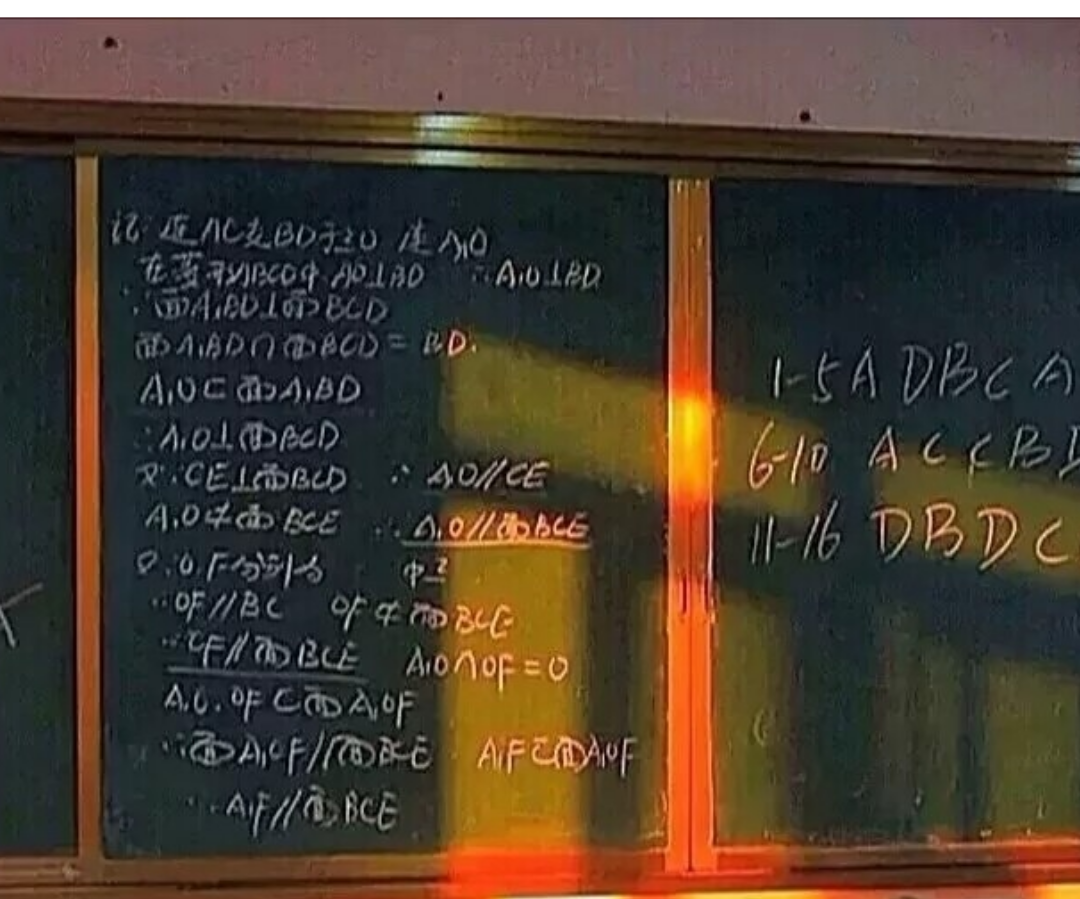 记:连AC交BD于点O 连A₁O
在菱形ABCD中 AO⊥BD ∴A₁O⊥BD
∵面A₁BD⊥面BCD
面A₁BD∩面BCD=BD.
A₁O⊂面A₁BD
∴A₁O⊥面BCD
又∵CE⊥面BCD ∴A₁O//CE
A₁O⊄面BCE ∴A₁O//面BCE
又∵O.F分别为 中点
∴OF//BC OF⊄面BCE
∴OF//面BCE A₁O∩OF=O
A₁O.OF⊂面A₁OF
∴面A₁OF//面BCE A₁F⊂面A₁OF
∴A₁F//面BCE
1-5 A D B C A
6-10 A C C B D
11-16 D B D C